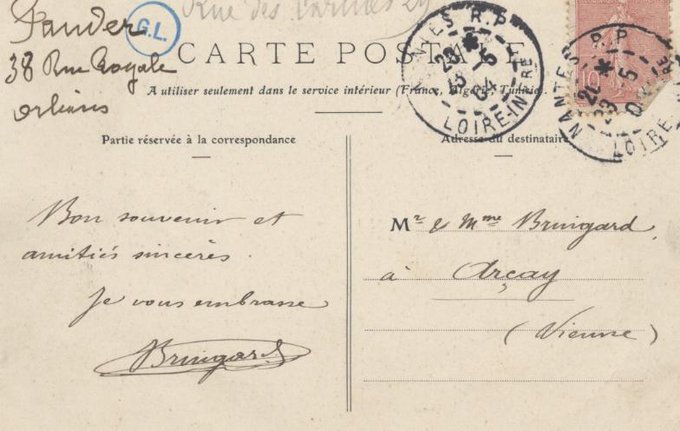 Rue des Carmes 29
Pander
G.L.
38 Rue Royale
Orléans
CARTE POSTALE
A utiliser seulement dans le service intérieur (France, Algérie, Tunisie).
NANTES R.P.
5
04
LOIRE-INFRE
NANTES R.P.
5
LOIRE
10
Partie réservée à la correspondance
Adresse du destinataire
Bon souvenir et
amitiés sincères.
Je vous embrasse
Bringard
Mr & Mme Bringard
à Arçay
(Vienne)